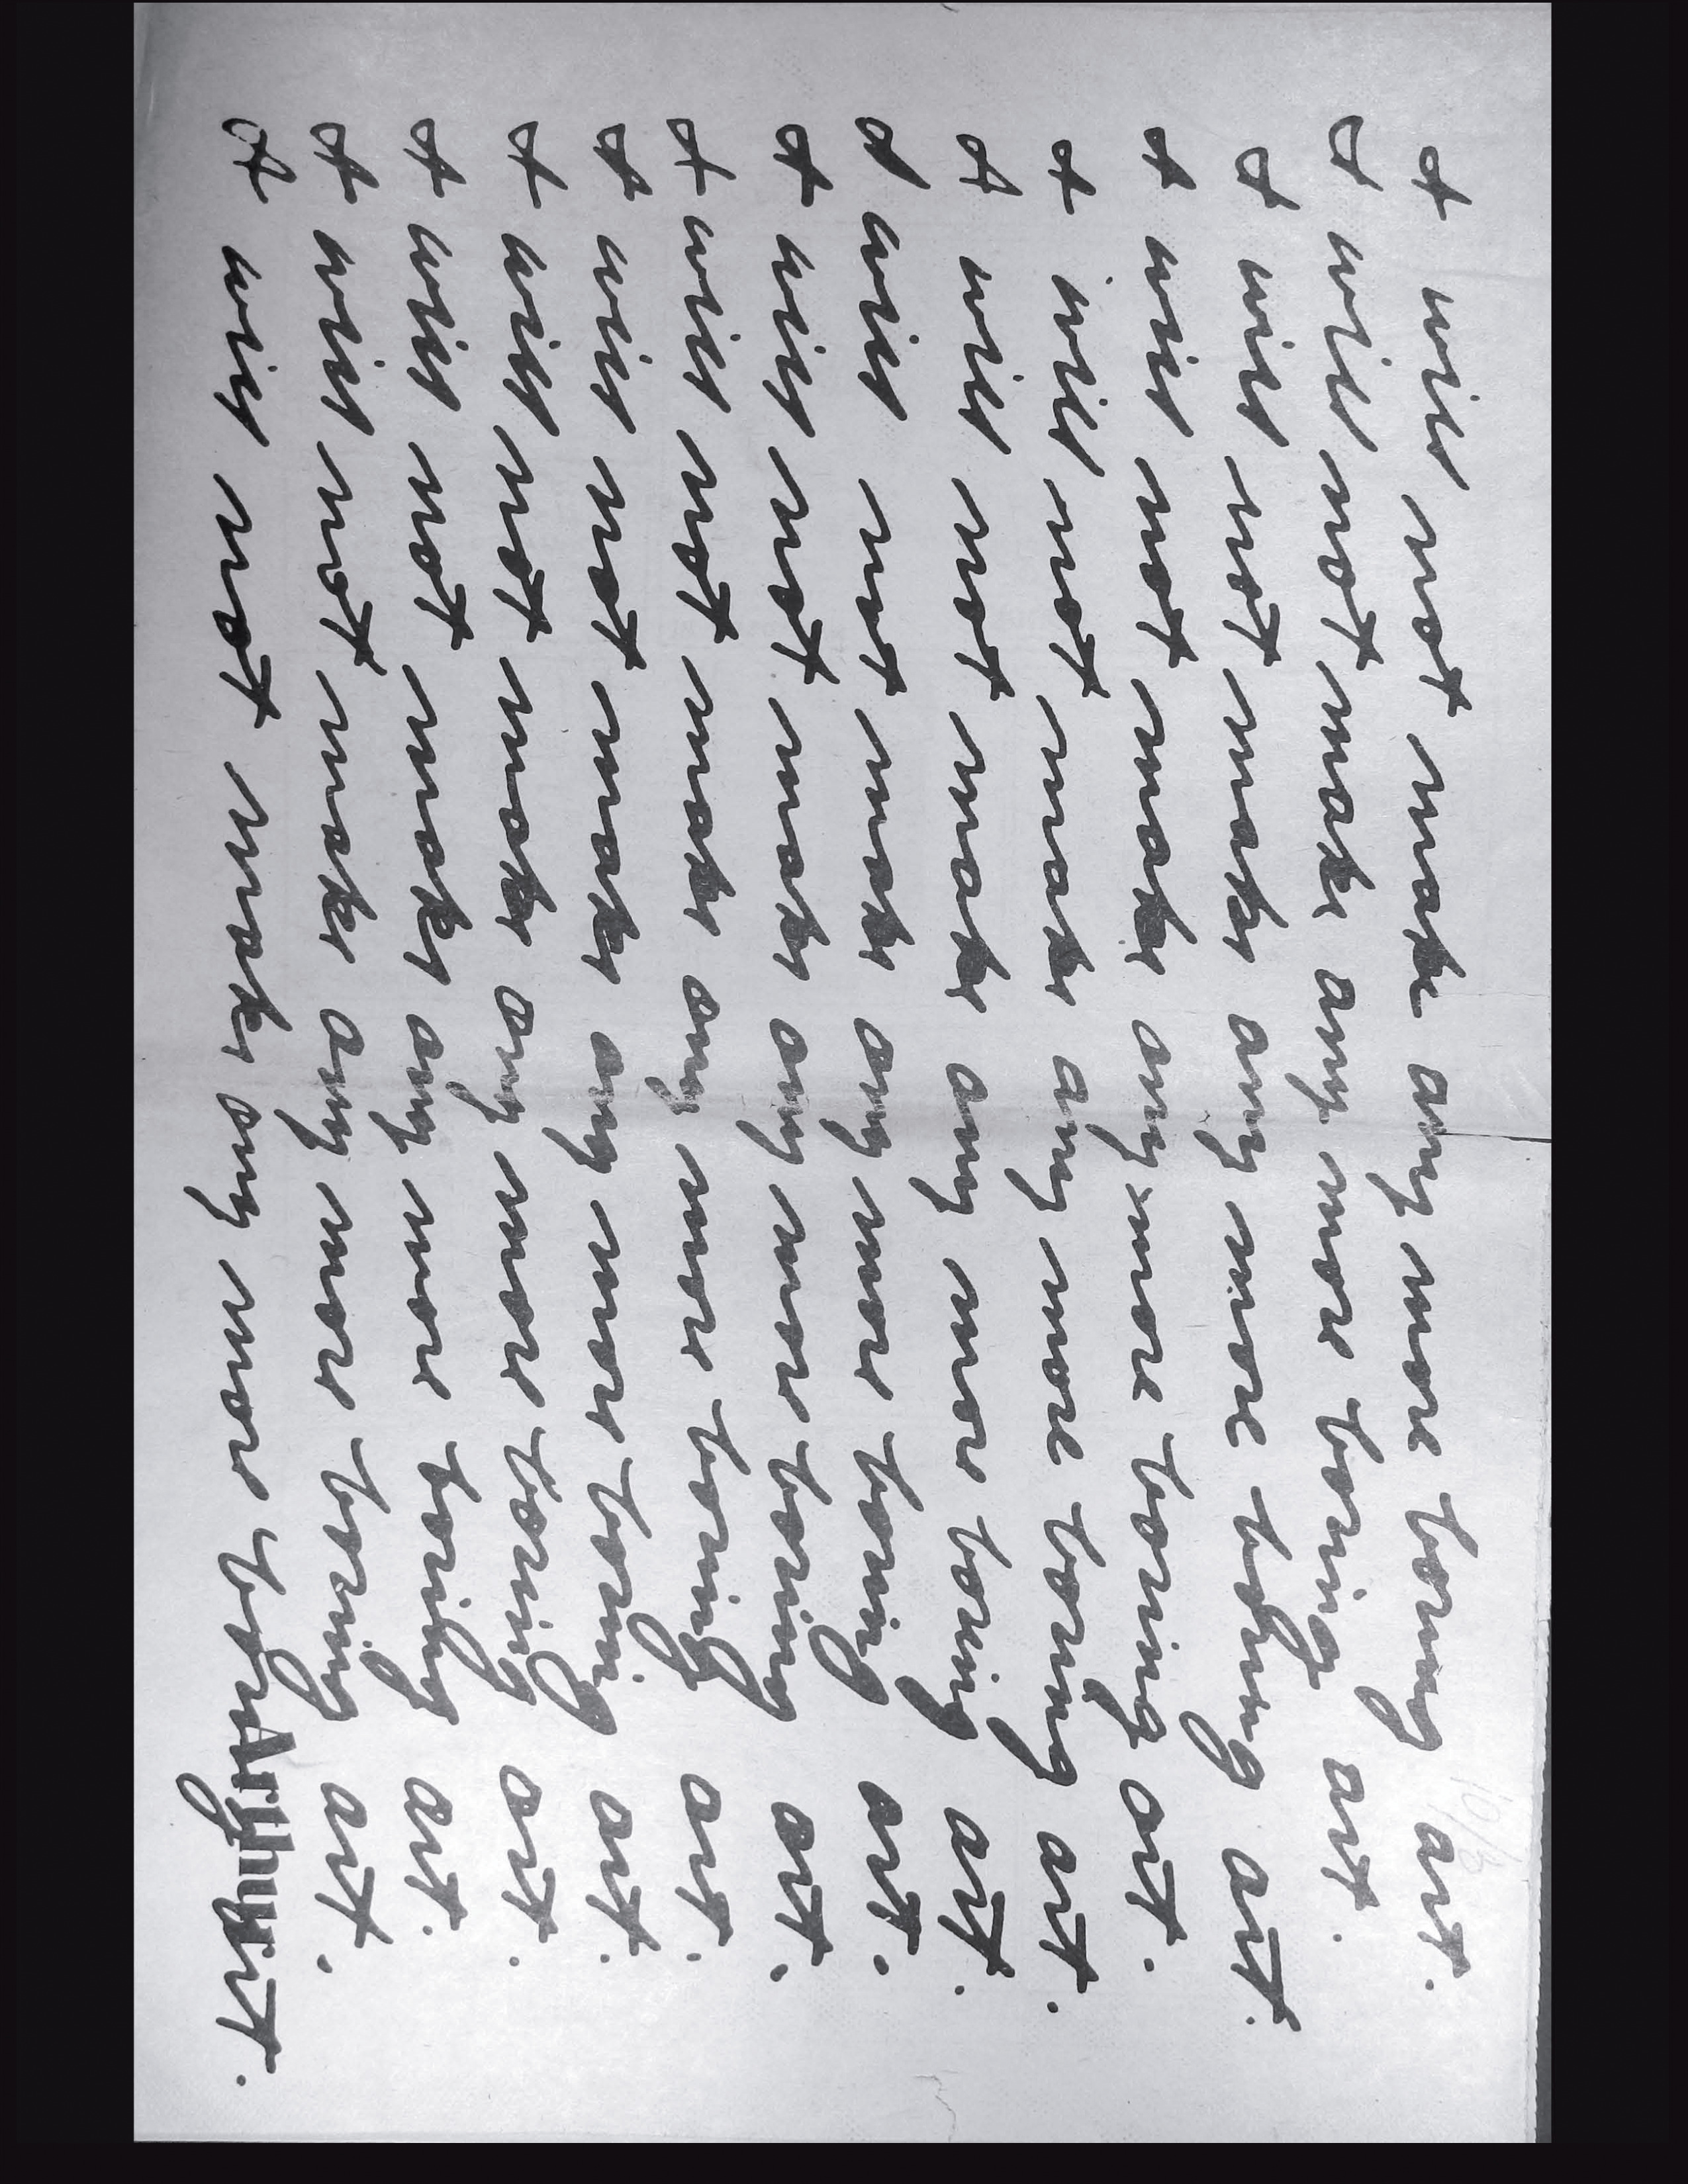 I will not make any more boring art.
I will not make any more boring art.
I will not make any more boring art.
I will not make any more boring art.
I will not make any more boring art.
I will not make any more boring art.
I will not make any more boring art.
I will not make any more boring art.
I will not make any more boring art.
I will not make any more boring art.
I will not make any more boring art.
I will not make any more boring art.
I will not make any more boring art.
I will not make any more boring art.